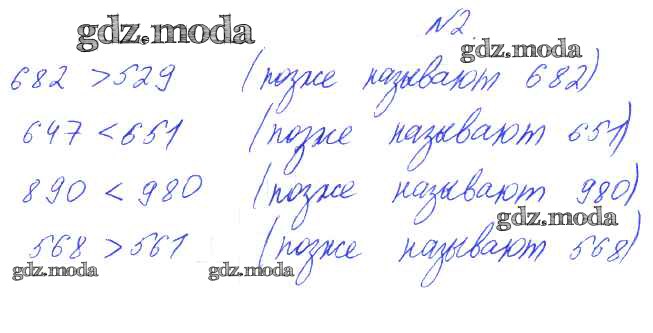 gdz.moda
№2.
gdz.moda
682 > 529 (позже называют 682)
647 < 651 (позже называют 651)
890 < 980 (позже называют 980)
gdz.moda
568 > 561 (позже называют 568)
gdz.moda gdz.moda